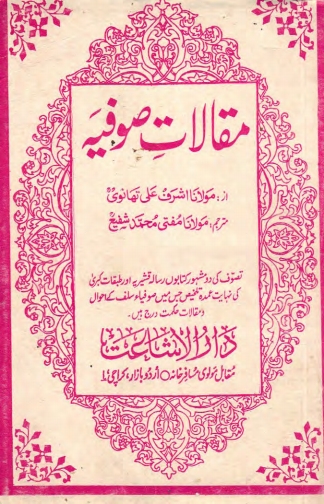 مقالاتِ صوفیہ
از: مولانا اشرف علی تھانویؒ
مترجم، مولانا مفتی محمد شفیعؒ
تصوف کی دو مشہور کتابوں رسالہ قشیریہ اور طبقات کبریٰ
کی نہایت عمدہ تلخیص جس میں صوفیاء سلف کے احوال
و مقالات حکمت درج ہیں۔
دَارُالاِشَاعَت
مقابل مولوی مسافر خانہ ○ اردو بازار، کراچی ۱